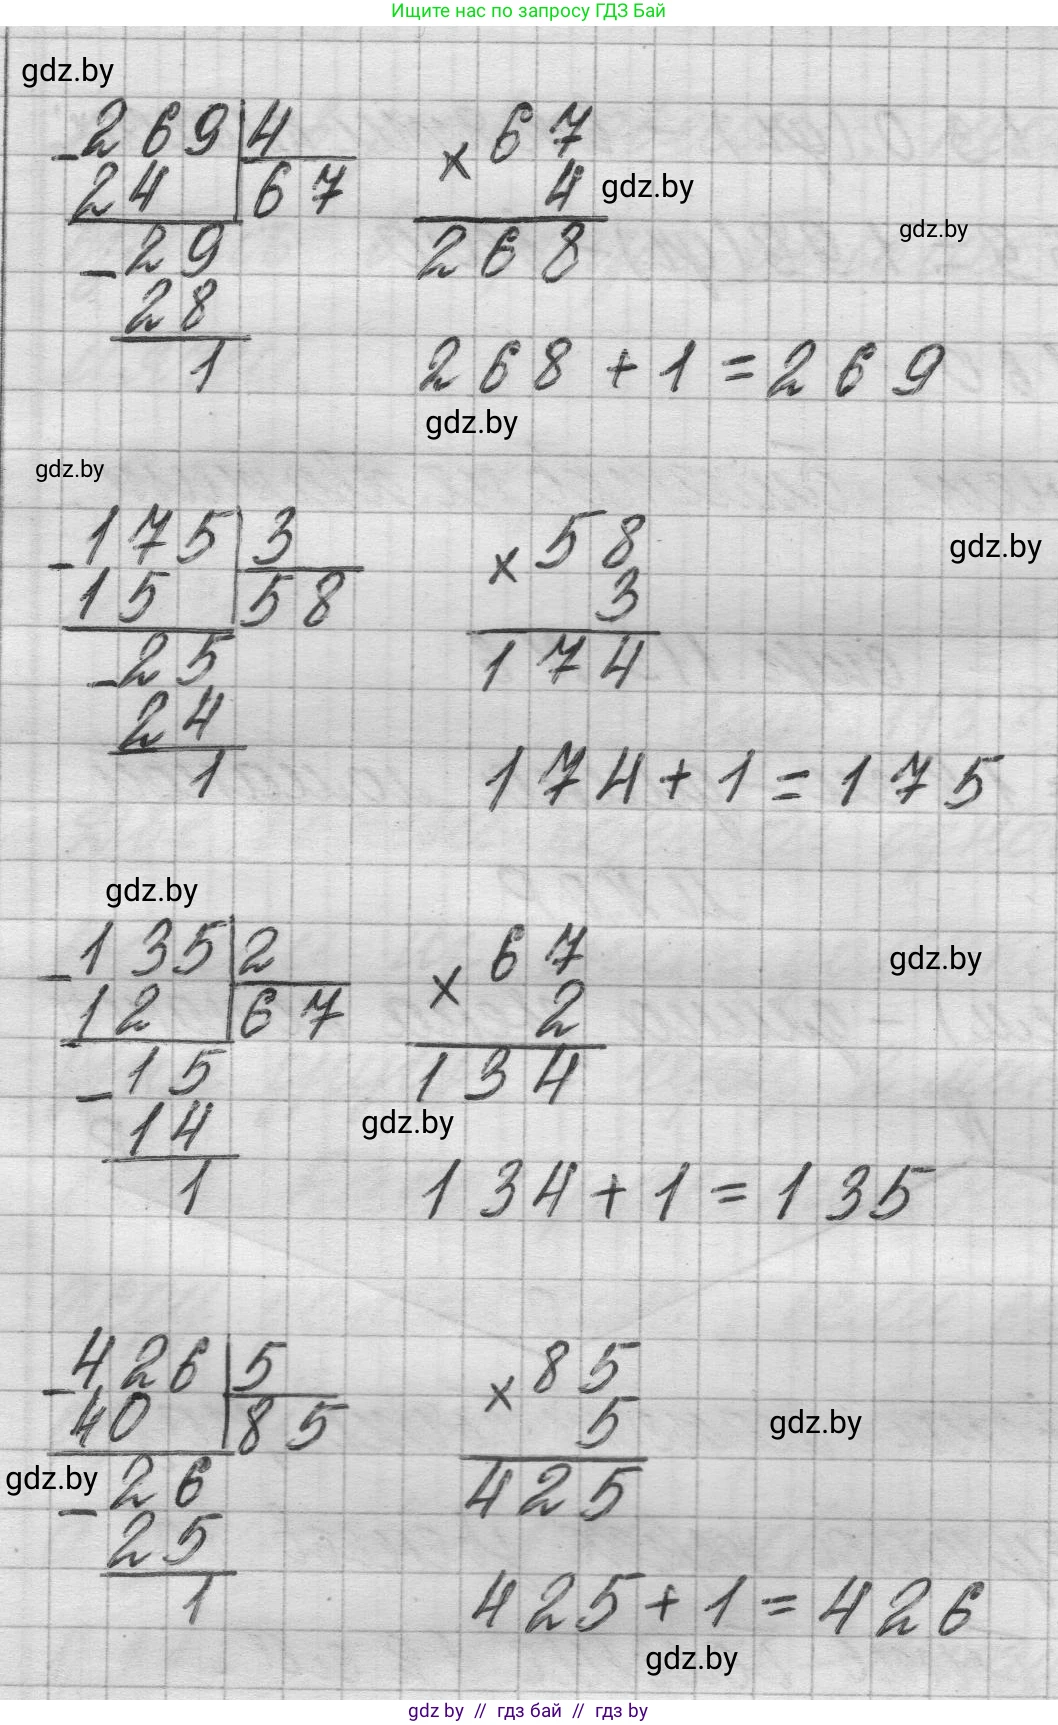 Ищите нас по запросу ГДЗ Бай
gdz.by
-269|4   × 67
24   67   4   gdz.by
gdz.by
-29   268
28
1   268+1=269
gdz.by
gdz.by
-175|3   × 58   gdz.by
15   58   3
-25   174
24
1   174+1=175
gdz.by
-135|2   × 67   gdz.by
12   67   2
-15   134
gdz.by
14
1   134+1=135
-426|5   × 85
40   85   5   gdz.by
gdz.by
-26   425
25
1   425+1=426
gdz.by
gdz by // гдз бай // гдз by